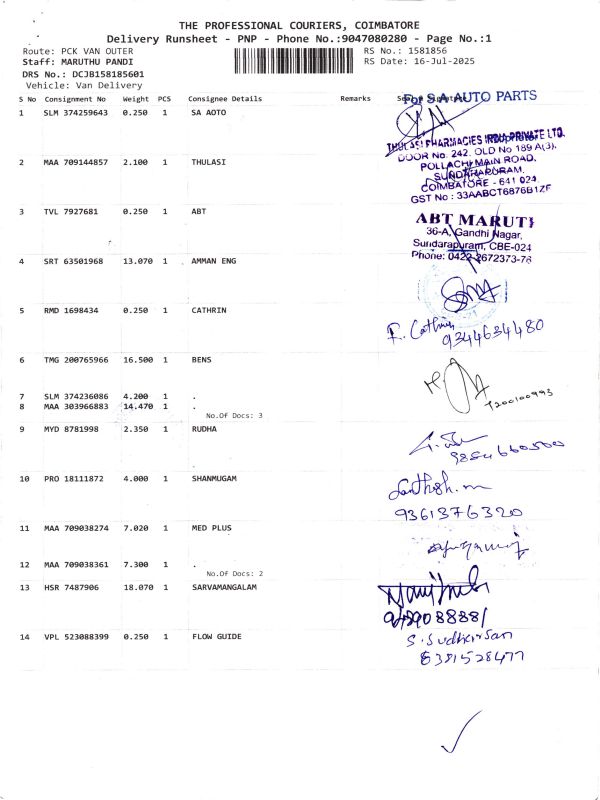 THE PROFESSIONAL COURIERS, COIMBATORE
Delivery Runsheet - PNP - Phone No.:9047080280 - Page No.:1
Route: PCK VAN OUTER
RS No.: 1581856
Staff: MARUTHU PANDI
RS Date: 16-Jul-2025
DRS No.: DCJB158185601
Vehicle: Van Delivery
S No Consignment No Weight PCS Consignee Details Remarks
For S A AUTO PARTS
1 SLM 374259643 0.250 1 SA AOTO
THULASI PHARMACIES INDIA PRIVATE LTD.
DOOR No. 242, OLD No 189 A(3),
2 MAA 709144857 2.100 1 THULASI
POLLACHI MAIN ROAD,
SUNDARAPURAM,
COIMBATORE - 641 024
GST No : 33AABCT6876B1ZF
3 TVL 7927681 0.250 1 ABT
ABT MARUTI
36-A, Gandhi Nagar,
Sundarapuram, CBE-024
Phone: 0422-2672373-76
4 SRT 63501968 13.070 1 AMMAN ENG
5 RMD 1698434 0.250 1 CATHRIN
F. Cathrin
9344634480
6 TMG 200765966 16.500 1 BENS
7200100993
7 SLM 374236086 4.200 1 .
8 MAA 303966883 14.470 1 .
No.Of Docs: 3
9 MYD 8781998 2.350 1 RUDHA
10 PRO 18111872 4.000 1 SHANMUGAM
Santhosh. m
9361376320
11 MAA 709038274 7.020 1 MED PLUS
12 MAA 709038361 7.300 1 .
No.Of Docs: 2
13 HSR 7487906 18.070 1 SARVAMANGALAM
14 VPL 523088399 0.250 1 FLOW GUIDE
S. Sudhirsan
6381528477